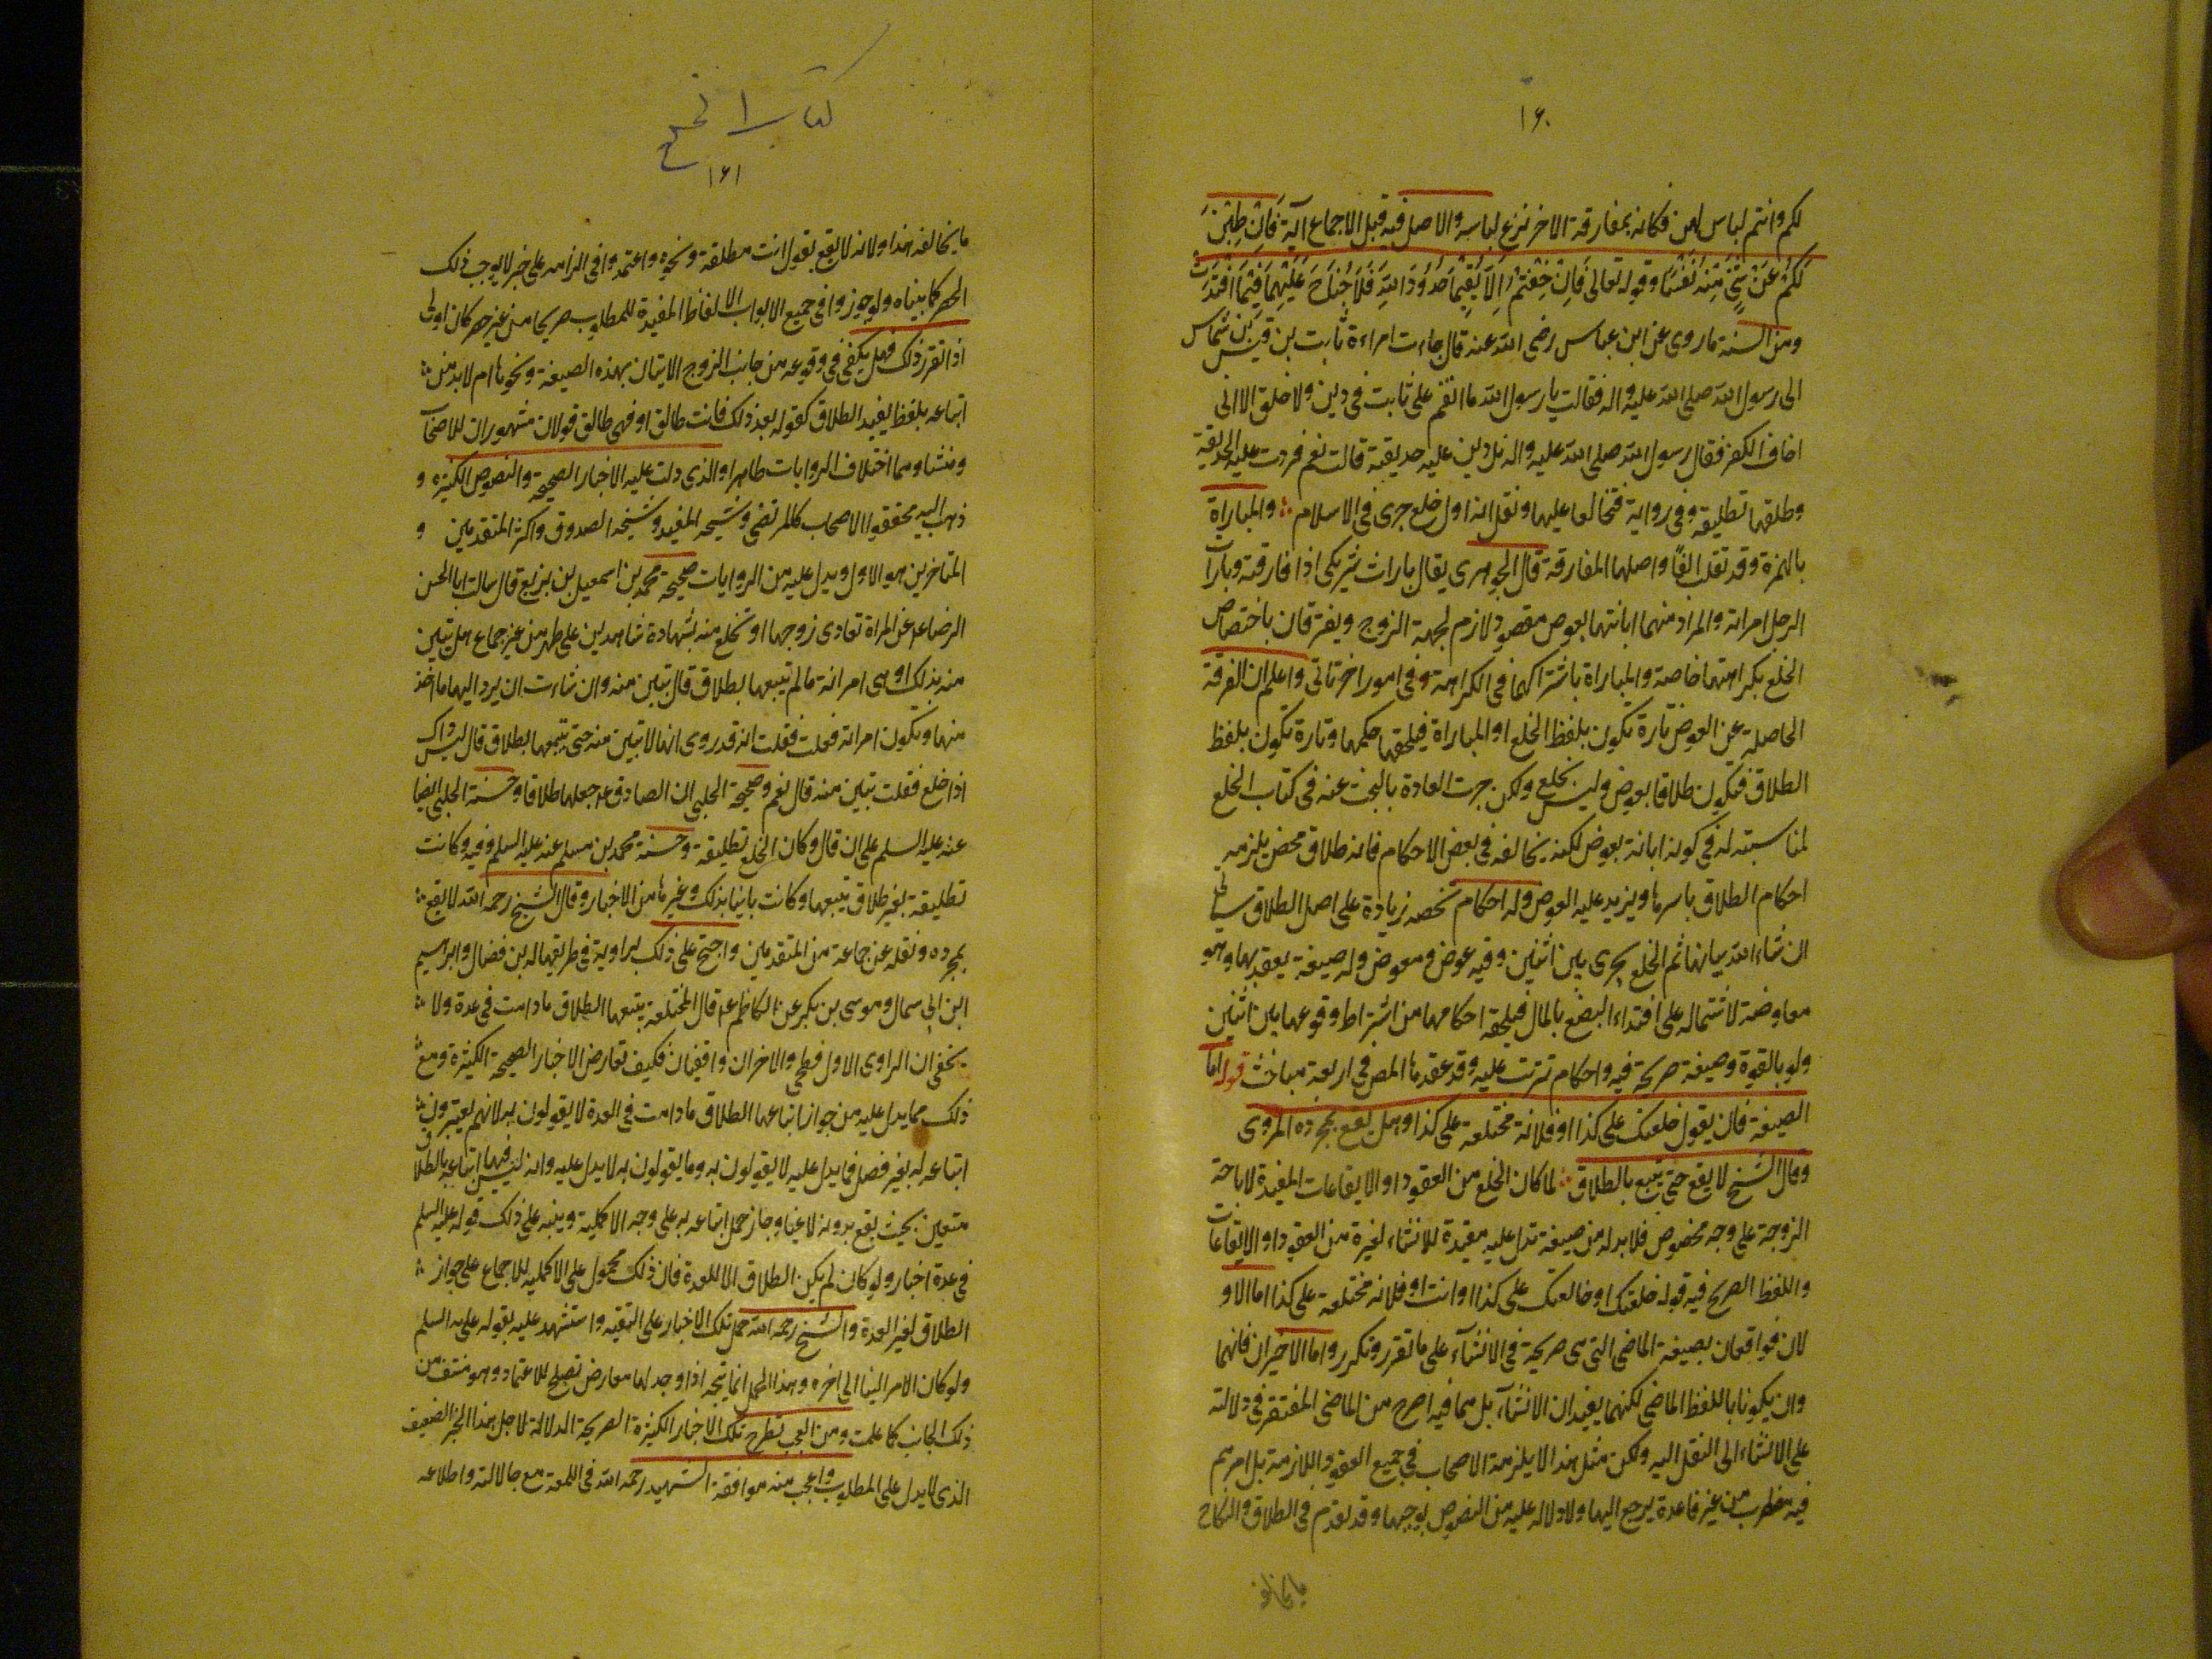 ١۶٠
لكم وانتم لباس لهن فكانه بمفارقة الاخر نزع لباسه والاصل فيه قبل الاجماع آية فَاِنْ طِبْنَ
لَكُمْ عَنْ شَيْءٍ مِنْهُ نَفْسًا وقوله تعالى فَاِنْ خِفْتُمْ اَلَّا يُقِيمَا حُدُودَ اللّهِ فَلَا جُنَاحَ عَلَيْهِمَا فِيمَا افْتَدَتْ
ومن السنة ما روى عن ابن عباس رضى الله عنه قال جاءت امراءة ثابت بن قيس بن شماس
الى رسول الله صلى الله عليه واله فقالت يا رسول الله ما انقم على ثابت فى دين ولا خلق الا انى
اخاف الكفر فقال رسول الله صلى الله عليه واله تردين عليه حديقته قالت نعم فردت عليه الحديقة
وطلقها تطليقه وفى رواية فتخالعا عليها ونقل انه اول خلع جرى فى الاسلام والمباراة
بالهمزة وقد تقلب الفًا واصلها المفارقة قال الجوهرى يقال بارات شريكى اذا فارقته وبارآ
الرجل امراته والمراد منهما ابانتها بعوض مقصود لازم لجهة الزوج ويفترقان باختصاص
الخلع بكراهتها خاصة والمباراة باشتراكهما فى الكراهة وفى امور اخر تاتى واعلم ان الفرقة
الحاصلة عن العوض تارة تكون بلفظ الخلع او المباراة فيلحقها حكمها وتارة تكون بلفظ
الطلاق فتكون طلاقا بعوض وليس بخلع ولكن جرت العادة بالبحث عنه فى كتاب الخلع
لمناسبته له فى كونه ابانة بعوض لكنه يخالفه فى بعض الاحكام فانه طلاق محض يلزمه
احكام الطلاق باسرها ويزيد عليه العوض وله احكام تخصه زيادة على اصل الطلاق سياتى
ان شاء الله بيانها ثم الخلع يجرى بين اثنين وفيه عوض ومعوض وله صيغة يعقد بها وهو
معاوضة لاشتماله على افتداء البضع بالمال فيلحقه احكامها من اشتراط وقوعها بين اثنين
ولو بالقوة وصيغة صريحة فيه واحكام ترتب عليه وقد عقدها المص فى اربعة مباحث قوله اما
الصيغة فان يقول خلعتك على كذا او فلانة مختلعة على كذا وهل يقع بمجرده المروى
وقال الشيخ لا يقع حتى يتبع بالطلاق لما كان الخلع من العقود او الايقاعات المفيدة لاباحة
الزوجة على وجه مخصوص فلا بد له من صيغة تدل عليه مفيدة للانشاء لغيره من العقود او الايقاعات
واللفظ الصريح فيه قوله خلعتك او خالعتك على كذا او انت او فلانه مختلعة على كذا اما الاو
لان فواقعان بصيغة الماضى التى هى صريحة فى الانشآء على ما تقرر وتكرر واما الاخيران فانهما
وان يكونا باللفظ الماضى لكنهما يفيدان الانشآء بل هما فيه اصرح من الماضى المفتقر فى دلالته
على الانشاء الى النقل اليه ولكن مثل هذا لا يلزمه الاصحاب فى جميع العقود اللازمة بل امرهم
فيه مضطرب من غير قاعدة يرجع اليها ولا دلاله عليه من النصوص توجبها وقد تقدم فى الطلاق والنكاح
ما يخالفه
كتاب الخلع
١۶١
ما يخالفه هذا ولانه لا يقع بقول انت مطلقة ونحوه واعتمدوا فى الزامه على خبر لا يوجب ذلك
الحصر كما بيناه ولو جوزوا فى جميع الابواب الالفاظ المفيدة للمطلوب صريحا من غير حصر كان اولى
اذا تقرر ذلك فهل يكفى فى وقوعه من جانب الزوج الاتيان بهذه الصيغة ونحوها ام لا بد من
اتباعه بلفظ يفيد الطلاق كقوله بعد ذلك فانت طالق او فهى طالق قولان مشهوران للاصحاب
ومنشاوهما اختلاف الروايات ظاهرا والذى دلت عليه الاخبار الصحيحة والنصوص الكثيرة و
ذهب اليه محققوا الاصحاب كالمرتضى وشيخه المفيد وشيخه الصدوق واكثر المتقدمين و
المتاخرين هو الاول ويدل عليه من الروايات صحيحة محمد بن اسمعيل بن بزيع قال سالت ابا الحسن
الرضا ع عن المراة تفادى زوجها او تختلع منه بشهادة شاهدين على طهر من غير جماع هل تبين
منه بذلك او هى امراته ما لم تتبعها بطلاق قال تبين منه وان شاءت ان يرد اليها ما اخذ
منها وتكون امراته فعلت فقلت انه قد روى انها لا تبين منه حتى يتبعها بطلاق قال ليس ذاك
اذا خلع فقلت تبين منه قال نعم وصحيحة الحلبى ان الصادق ع جعلها طلاقا وحسنة الحلبى ايضا
عنه عليه السلم على ان قال وكان الخلع تطليقة وحسنة محمد بن مسلم عنه عليه السلم وفيه وكانت
تطليقة بغير طلاق يتبعها وكانت باينا بذلك وغيرها من الاخبار وقال الشيخ رحمه الله لا يقع
بمجرده ونقله عن جماعة من المتقدمين واحتج على ذلك براوية فى طريقها له بن فضال وابراهيم
ابن ابى سمال وموسى بن بكير عن الكاظم ع قال المختلعة يتبعها الطلاق ما دامت فى عدة ولا
يخفى ان الراوى الاول فطحى والاخران واقفيان فكيف تعارض الاخبار الصحيحة الكثيرة ومع
ذلك مما يدل عليه من جواز اتباعها الطلاق ما دامت فى العدة لا يقولون به لانهم يعتبرون
اتباعه له بغير فصل فما يدل عليه لا يقولون به وما يقولون به لا يدل عليه وانه ليس فيها اتباعه بالطلاق
متعين بحيث يقع بدونه لاغيا وجاز حمل اتباعه به على وجه الاكملية وينبه على ذلك قوله عليه السلم
فى عدة اخبار ولو كان لم يكن الطلاق الا للعدة فان ذلك محمول على الاكمليه للاجماع على جواز
الطلاق لغير العدة والشيخ رحمه الله حمل تلك الاخبار على التقيه واستشهد عليه بقوله عليه السلم
ولو كان الامر الينا الى اخره وهذا الحمل انما يتجه اذا وجد لها معارض تصلح للاعتماد وهو منتف من
ذلك الجانب كما علمت ومن العجب تطرح تلك الاخبار الكثيرة الصريحة الدلالة لاجل هذا الخبر الضعيف
الذى لا يدل على المطلوب واعجب منه موافقة الشهيد رحمه الله فى اللمعة مع جلالته واطلاعه